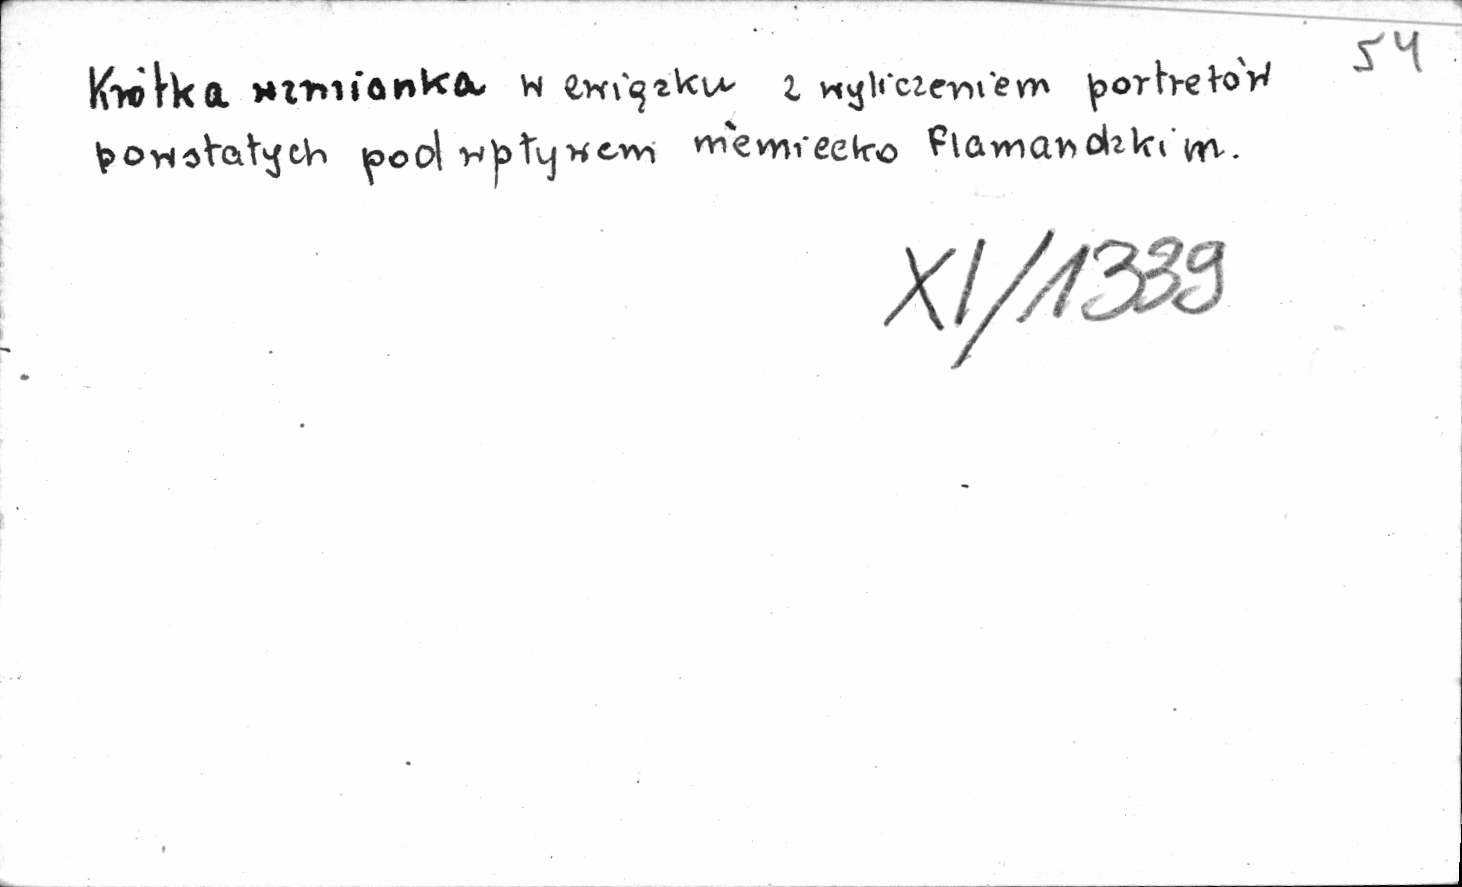 54
Krótka wzmianka w związku z wyliczeniem portretów
powstałych pod wpływem niemiecko flamandzkim.
XI/1339